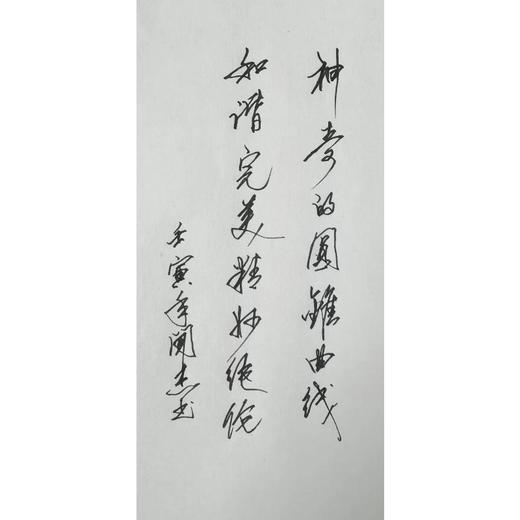 神奇的圆锥曲线
和谐完美精妙绝伦
壬寅年闻杰书